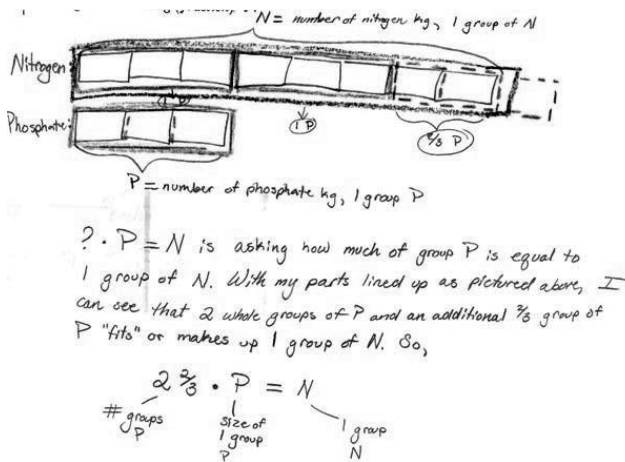 N = number of nitrogen kg, 1 group of N
Nitrogen:
1 P
1 P
2/3 P
Phosphate:
P = number of phosphate kg, 1 group P
? · P = N is asking how much of group P is equal to
1 group of N. With my parts lined up as pictured above, I
can see that 2 whole groups of P and an additional 2/3 group of
P "fits" or makes up 1 group of N. So,
2 2/3 · P = N
# groups P
size of 1 group P
1 group N